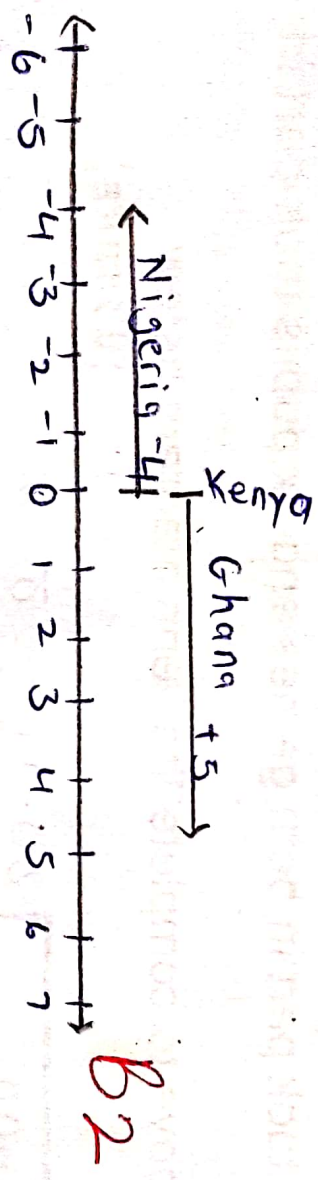 Kenya
Ghana +5
Nigeria -4
-6 -5 -4 -3 -2 -1 0 1 2 3 4 5 6 7
B2